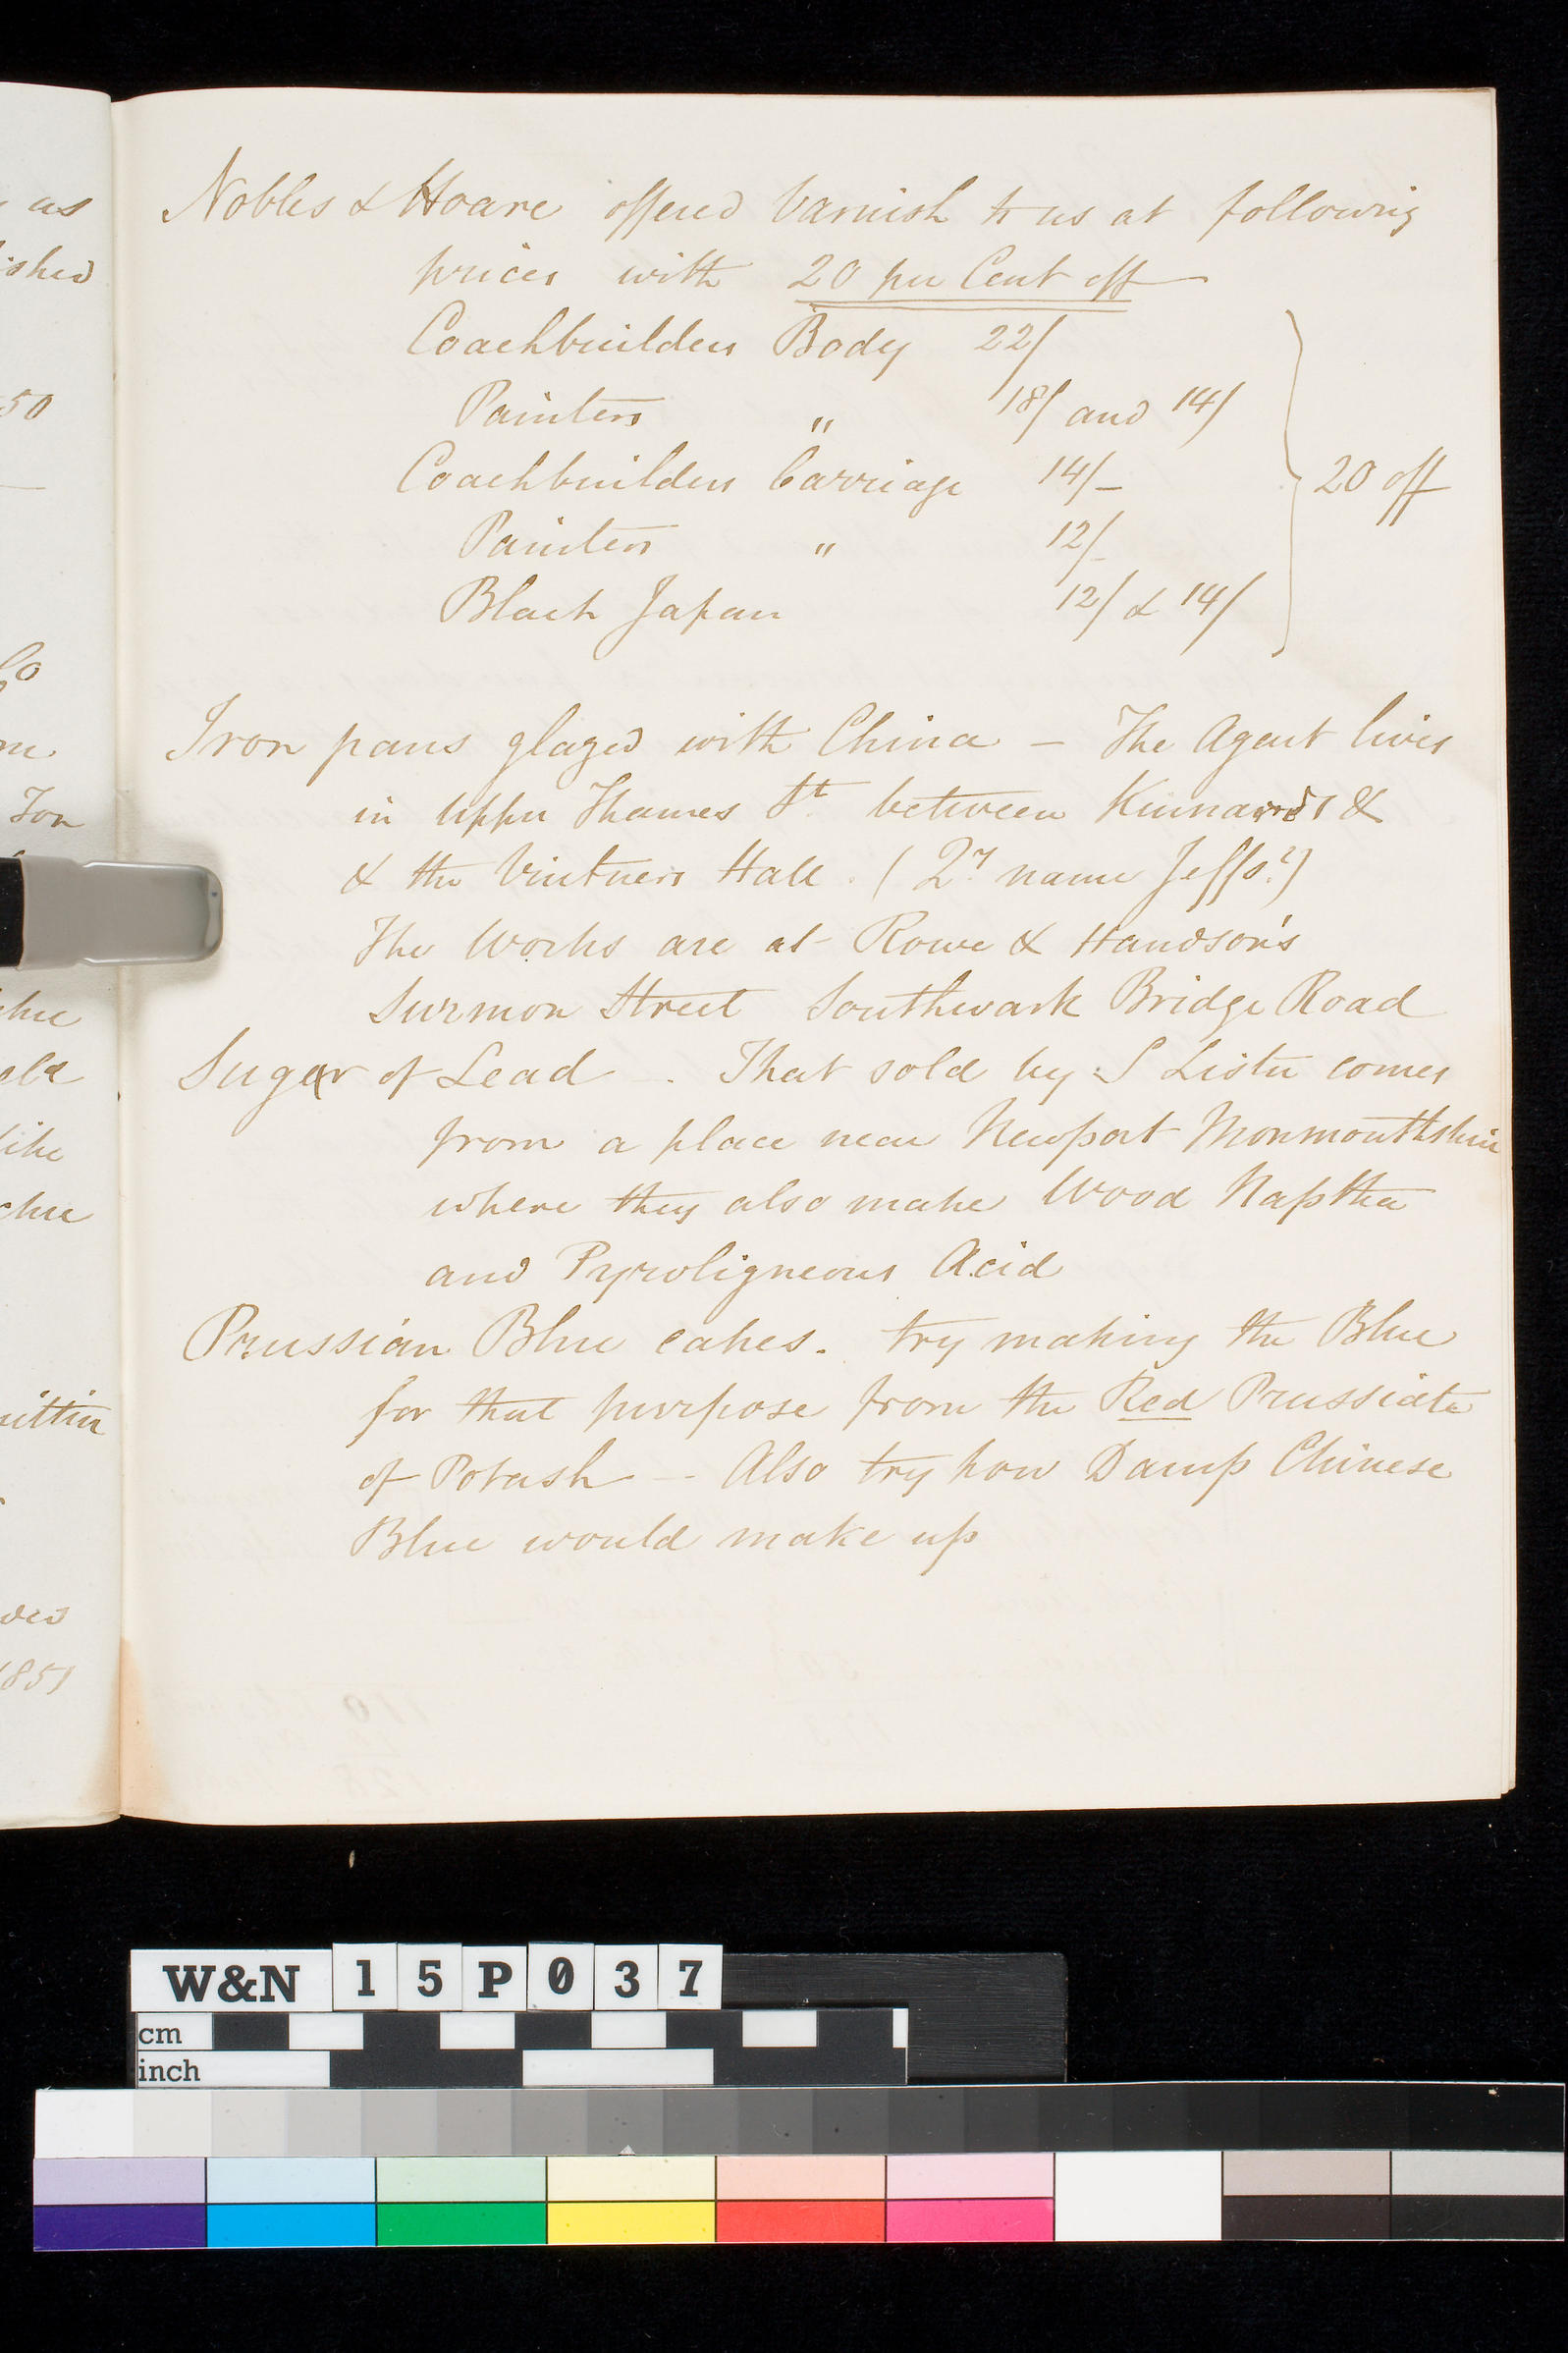 Nobles & Hoare offered Varnish to us at following
prices with 20 per Cent off
Coachbuilders Body 22/
Painters " 18/ and 14/
Coachbuilders Carriage 14/-
20 off
Painters " 12/-
Black Japan 12/ & 14/
Iron pans glazed with China - The Agent lives
in Upper Thames St. between Kinnairds &
& the Vintners Hall. (Qy name Jeffs?)
The Works are at Rowe & Handson's
Surmon Street Southwark Bridge Road
Sugar of Lead. That sold by S Lister comes
from a place near Newport Monmouthshire
where they also make Wood Naptha
and Pyroligneous Acid
Prussian Blue cakes. try making the Blue
for that purpose from the Red Prussiate
of Potash - Also try how Damp Chinese
Blue would make up
as
ished
50
Co
me
Ton
ike
ittin
1851
W&N 15P037
cm
inch